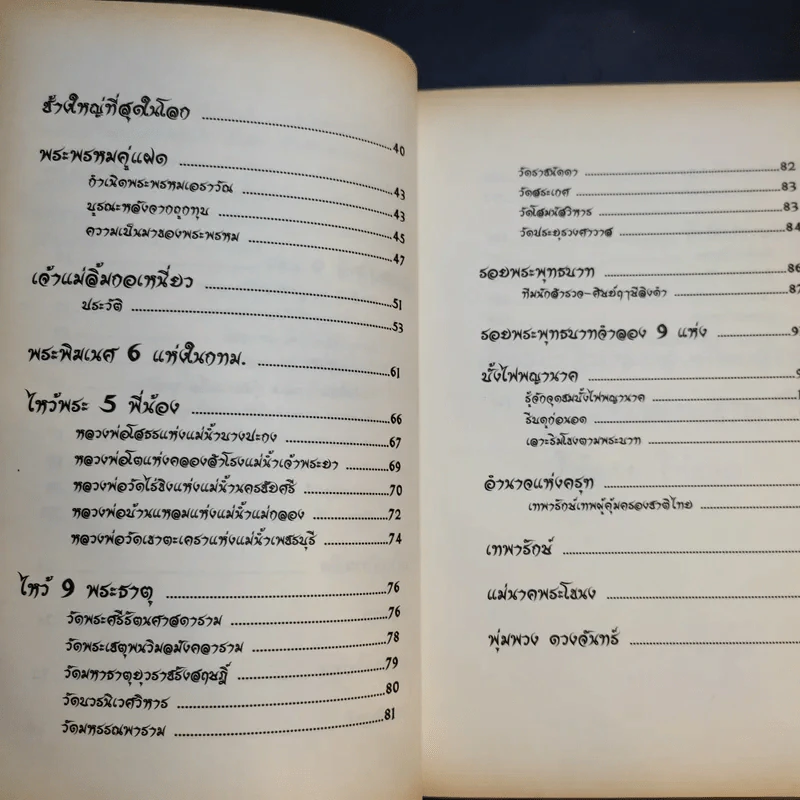 ช้างใหญ่ที่สุดในโลก 40
พระพรหมคู่แฝด 43
กำเนิดพระพรหมเอราวัณ 43
บูรณะหลังจากถูกทุบ 45
ความเป็นมาของพระพรหม 47
เจ้าแม่ลิ้มกอเหนี่ยว 51
ประวัติ 53
พระพิฆเนศ 6 แห่งในกทม. 61
ไหว้พระ 5 พี่น้อง 66
หลวงพ่อโสธรแห่งแม่น้ำบางปะกง 67
หลวงพ่อโตแห่งคลองสำโรงแม่น้ำเจ้าพระยา 69
หลวงพ่อวัดไร่ขิงแห่งแม่น้ำนครชัยศรี 70
หลวงพ่อบ้านแหลมแห่งแม่น้ำแม่กลอง 72
หลวงพ่อวัดเขาตะเคราแห่งแม่น้ำเพชรบุรี 74
ไหว้ 9 พระธาตุ 76
วัดพระศรีรัตนศาสดาราม 76
วัดพระเชตุพนวิมลมังคลาราม 78
วัดมหาธาตุยุวราชรังสฤษฎิ์ 79
วัดบวรนิเวศวิหาร 80
วัดมหรรณพาราม 81
วัดราชนัดดา 82
วัดสระเกศ 83
วัดโสมนัสวิหาร 83
วัดประยุรวงศาวาส 84
รอยพระพุทธบาท 86
ทีมนักสำรวจ-ศิษย์ฤๅษีลิงดำ 87
รอยพระพุทธบาทจำลอง 9 แห่ง 9
บั้งไฟพญานาค 9
รู้จักจุดชมบั้งไฟพญานาค 1
รีบดูก่อนอด
เลาะริมโขงตามพระบาท
อำนาจแห่งครุฑ
เทพารักษ์เทพผู้คุ้มครองชาติไทย
เทพารักษ์
แม่นาคพระโขนง
พุ่มพวง ดวงจันทร์